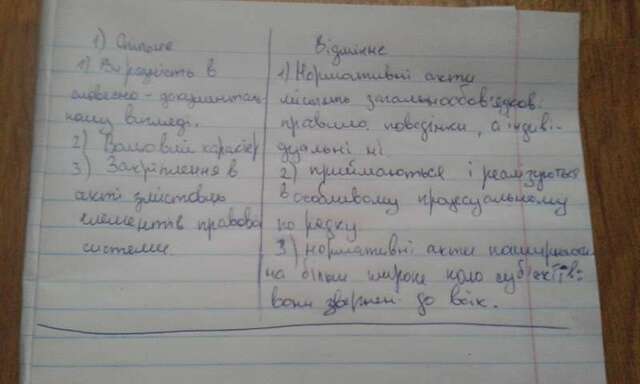 1) Спільне
1) Виразність в
словесно-документаль
ному вигляді.
2) Вольовий характер
3) Закріплення в
акті змістовних
елементів правової
системи.
Відмінне
1) Нормативні акти
містять загальнообов'язков.
правила поведінки, а індиві-
дуальні ні
2) приймаються і реалізуються
в особливому процесуальному
порядку
3) нормативні акти поширюються
на більш широке коло суб'єктів:
вони звернені до всіх.